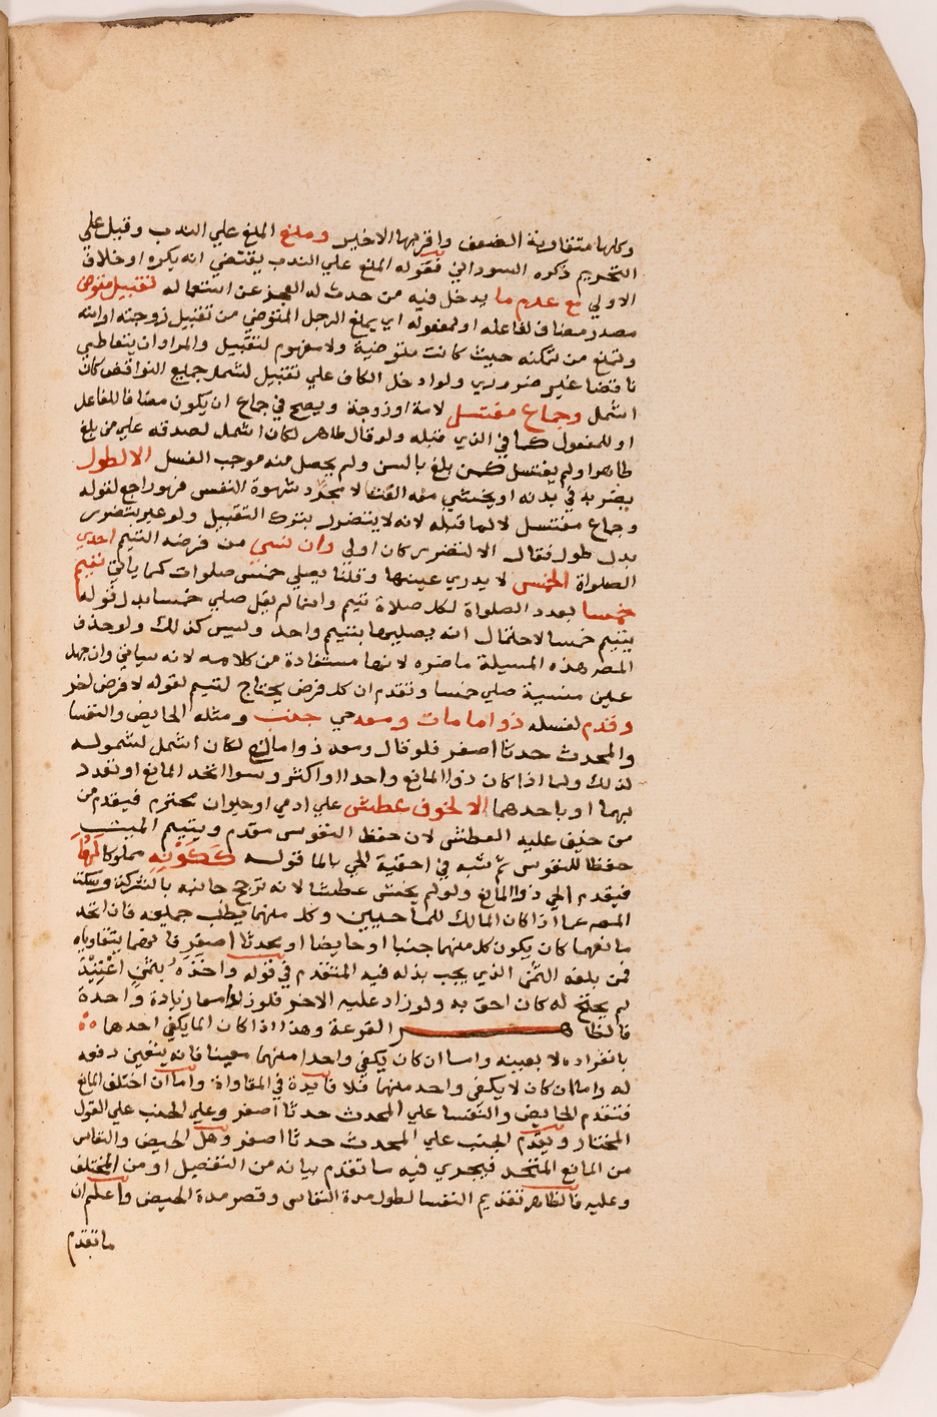 وكلها متقاوية الضعف واقربها الاخير ومنع المنع علي الندب وقيل علي
التحريم ذكره السوداني فقوله المنع علي الندب يقتضي انه يكره او خلاف
الاولي مع عدم ما يدخل فيه من حدث له العجز عن استعماله لتقبيل متوض
مصدر مضاف لفاعله او لمفعوله اي يمنع الرجل المتوضي من تقبيل زوجته او امته
وتمنع من تمكنه حيث كانت متوضية ولا مفهوم لتقبيل والمراد ان يتعاطي
ناقضا غير ضروري ولو ادخل الكاف علي تقبيل لشمل جميع النواقض كان
اشمل وجماع مغتسل لامة او زوجة ويصح في جماع ان يكون مضافا للفاعل
او للمفعول كما في الذي قبله ولو قال طاهر لكان اشمل لصدقه علي من بلغ
طاهرا ولم يغتسل كمن بلغ بالسن ولم يحصل منه موجب الغسل الا لطول
يضر به في بدنه او يخشي منه العنت لا مجرد شهوة النفس فهو راجع لقوله
وجماع مغتسل لا لما قبله لانه لا يتضرر بترك التقبيل ولو عبر بتضرر
بدل طول فقال الا لتضرر كان اولي وان نسي من فرضه التيمم احدي
الصلواة الخمس لا يدري عينها وقلنا يصلي خمس صلوات كما ياتي تيمم
خمسا بعدد الصلواة لكل صلاة تيمم وانما لم يقل صلي خمسا بدل قوله
يتيمم خمسا لاحتمال انه يصليها بتيمم واحد وليس كذلك ولو حذف
المصـ هذه المسيلة ما ضره لانها مستفادة من كلامه لانه سياتي وان جهل
عين منسية صلي خمسا وتقدم ان كل فرض يحتاج لتيمم لقوله لا فرض اخر
وقدم لغسله ذو ما مات ومعه حي جنب ومثله الحايض والنفسا
والمحدث حدثا اصغر فلو قال ومعه ذو مانع لكان اشمل لشموله
لذلك ولما اذا كان ذو المانع واحدا او اكثر وسوا اتحد المانع او تعدد
بهما او باحدهما الا لخوف عطش علي ادمي او حيوان محترم فيقدم من
من خيف عليه العطش لان حفظ النفوس مقدم وييمم الميت
حفظا للنفوس ثم شبه في احقية الحي بالما قوله ككونه مملوكا لهما
فيقدم الحي ذو المانع ولو لم يخش عطشا لانه ترجح جانبه بالشركة وسكت
المصـ عما اذا كان المالك للما حيين وكل منهما يطلب جميعه فان اتحد
مانعهما كان يكون كل منهما جنبا او حايضا او محدثا اصغر فانهما يتقاوياه
فمن بلغه الثمن الذي يجب بذله فيه المتقدم في قوله واخذه بثمن اعتيد
لم يحتج له كان احق به ولو زاد عليه الاخر فلو زادا معا زيادة واحدة
فالظاهر القرعة وهذا اذا كان الما يكفي احدهما
بانفراده لا بعينه واما ان كان يكفي واحدا منهما معينا فانه يتعين دفعه
له واما ان كان لا يكفي واحد منهما فلا فايدة في المقاواة واما ان اختلف المانع
فتقدم الحايض والنفسا علي المحدث حدثا اصغر وعلي الجنب علي القول
المختار ويقدم الجنب علي المحدث حدثا اصغر وهل الحيض والنفاس
من المانع المتحد فيجري فيه ما تقدم بيانه من التفصيل او من المختلف
وعليه فالظاهر تقديم النفسا لطول مدة النفاس وقصر مدة الحيض واعلم ان
ما تقدم